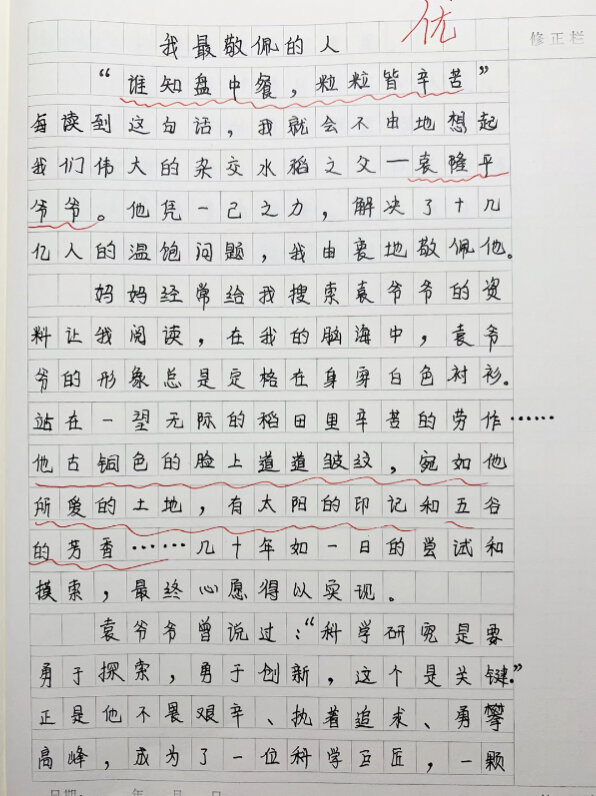 优
修正栏
我最敬佩的人
“谁知盘中餐，粒粒皆辛苦”
每读到这句话，我就会不由地想起
我们伟大的杂交水稻之父—袁隆平
爷爷。他凭一己之力，解决了十几
亿人的温饱问题，我由衷地敬佩他。
妈妈经常给我搜索袁爷爷的资
料让我阅读，在我的脑海中，袁爷
爷的形象总是定格在身穿白色衬衫。
站在一望无际的稻田里辛苦的劳作……
他古铜色的脸上道道皱纹，宛如他
所爱的土地，有太阳的印记和五谷
的芳香……几十年如一日的尝试和
摸索，最终心愿得以实现。
袁爷爷曾说过：“科学研究是要
勇于探索，勇于创新，这个是关键。”
正是他不畏艰辛、执着追求、勇攀
高峰，成为了一位科学巨匠，一颗